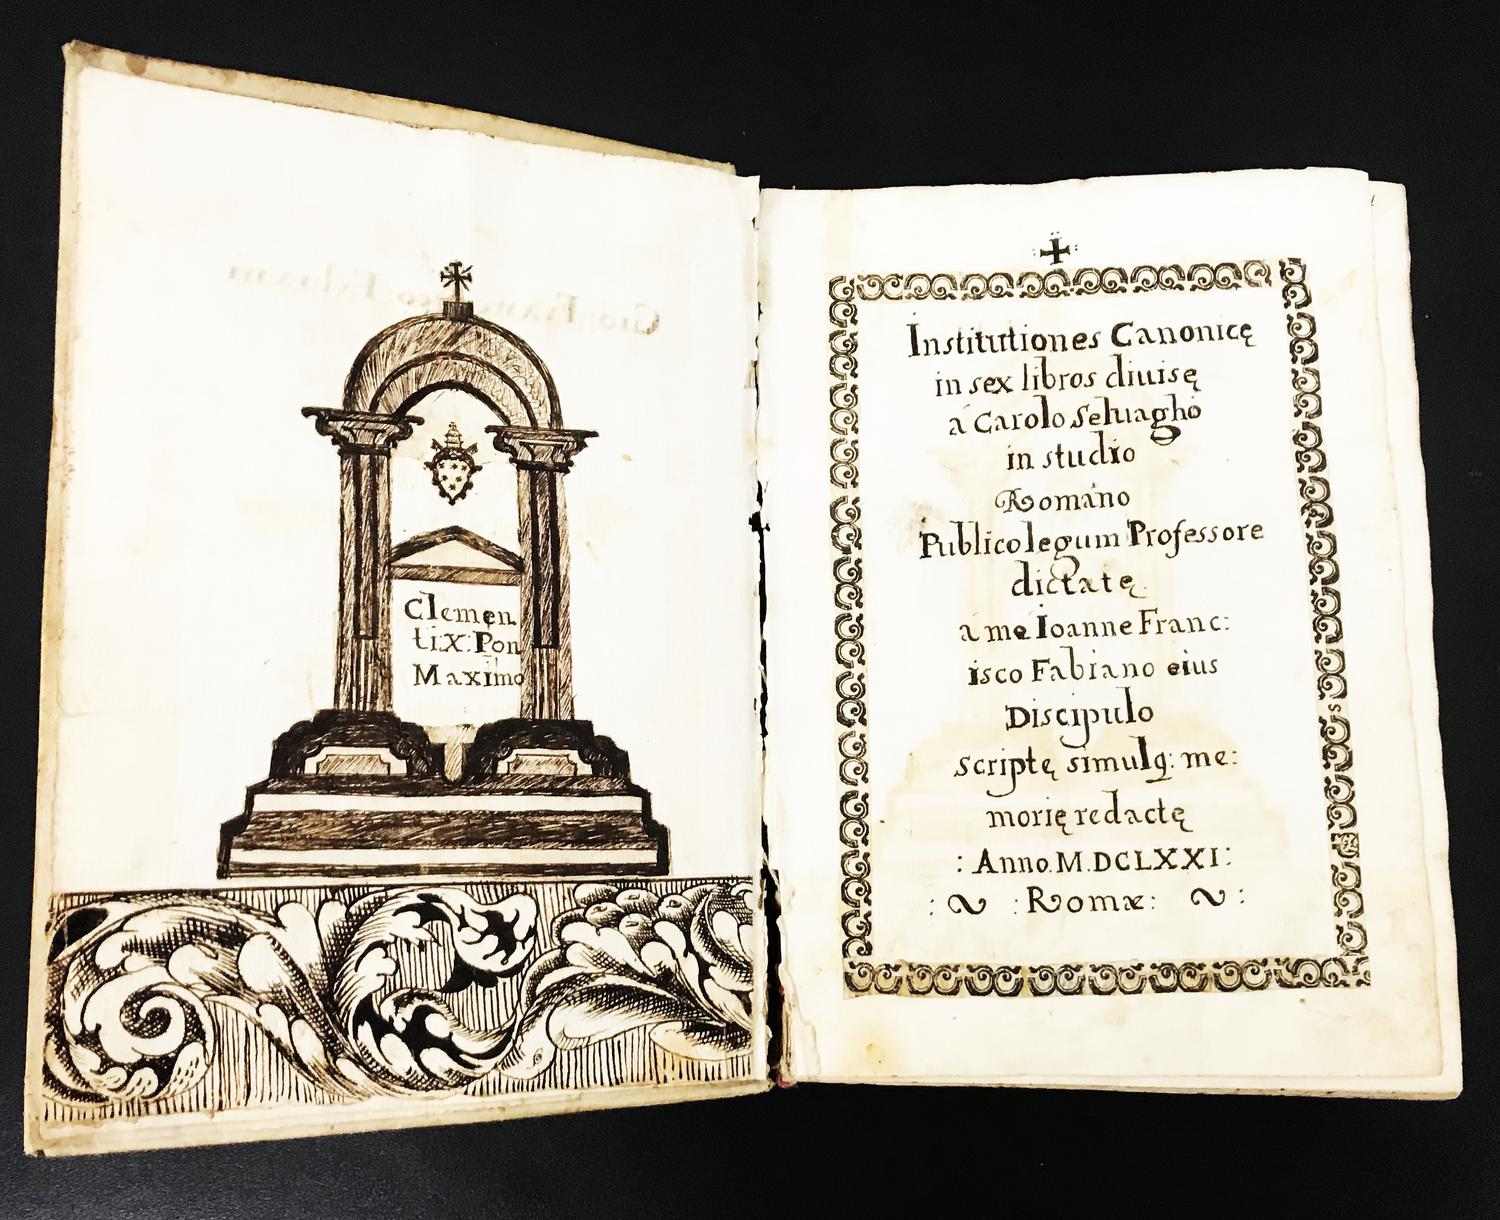 Clemen
ti.X: Pon
Maximo
Institutiones Canonicę
in sex libros diuisę
á Carolo Seluagho
in studio
Romano
Publico legum Professore
dictatę
a me Ioanne Franc:
isco Fabiano eius
Discipulo
scriptę simulq: me:
morię redactę
: Anno. M.DCLXXI:
: Romæ: